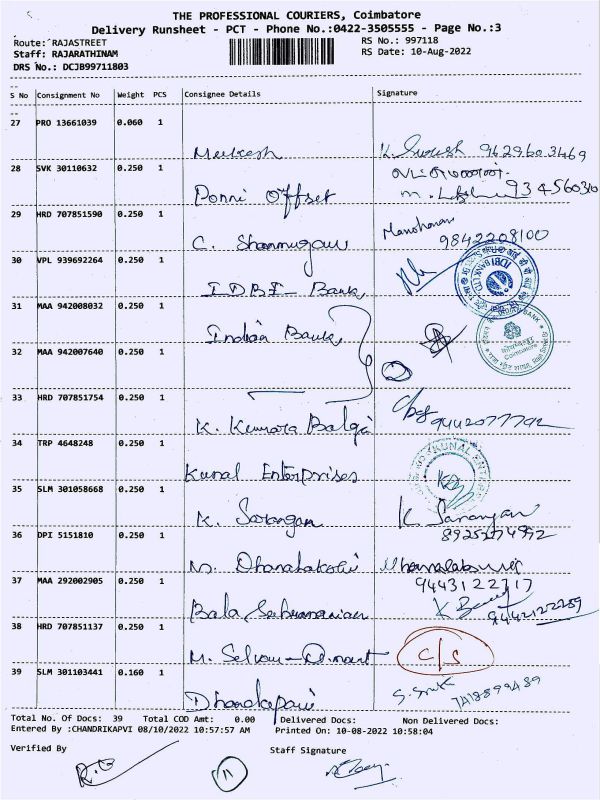 THE PROFESSIONAL COURIERS, Coimbatore
Delivery Runsheet - PCT - Phone No.:0422-3505555 - Page No.:3
Route: RAJASTREET
RS No.: 997118
Staff: RAJARATHINAM
RS Date: 10-Aug-2022
DRS No.: DCJB99711803
S No Consignment No Weight PCS Consignee Details Signature
27 PRO 13661039 0.060 1
K. Suresh 9629603469
28 SVK 30110632 0.250 1
Ponni Offset
29 HRD 707851590 0.250 1
Manoharan
C. Shanmugam 9842208100
30 VPL 939692264 0.250 1
IDBI Bank
31 MAA 942008032 0.250 1
Indian Bank
32 MAA 942007640 0.250 1
33 HRD 707851754 0.250 1
K. Kumara 9442077792
34 TRP 4648248 0.250 1
Kunal Enterprises
35 SLM 301058668 0.250 1
K. Sarangan K Sarangan
36 DPI 5151810 0.250 1
37 MAA 292002905 0.250 1
9443122717
Bala Subramanian
38 HRD 707851137 0.250 1
C/S
39 SLM 301103441 0.160 1
7418899489
Total No. Of Docs: 39 Total COD Amt: 0.00 Delivered Docs: Non Delivered Docs:
Entered By :CHANDRIKAPVI 08/10/2022 10:57:57 AM Printed On: 10-08-2022 10:58:04
Verified By Staff Signature